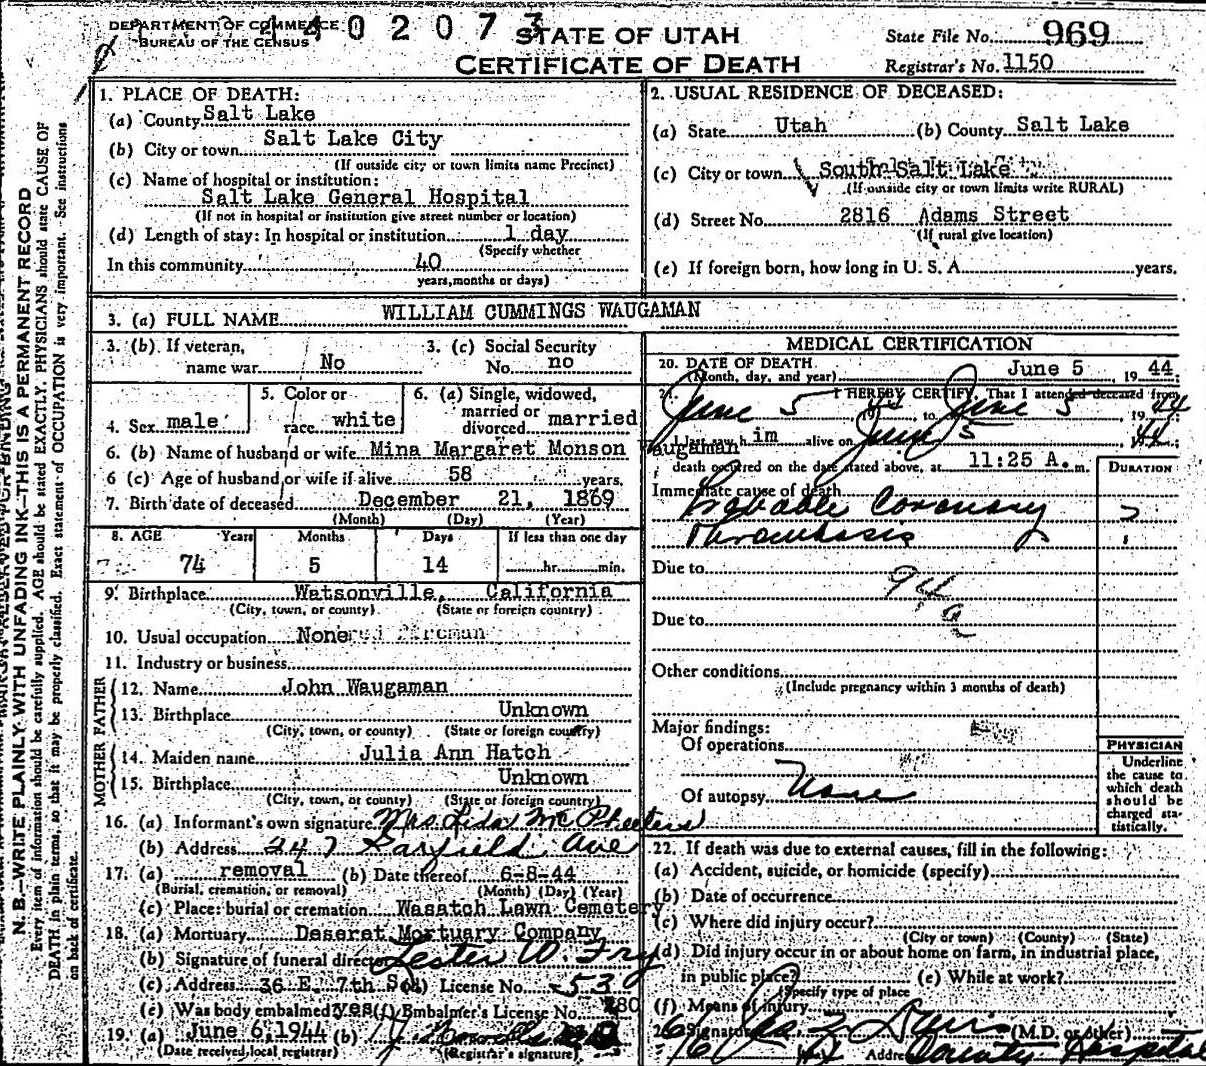 DEPARTMENT OF COMMERCE
BUREAU OF THE CENSUS
1 4 0 2 0 7 3
STATE OF UTAH
CERTIFICATE OF DEATH
State File No. 969
Registrar's No. 1150
N. B.—WRITE PLAINLY WITH UNFADING INK—THIS IS A PERMANENT RECORD
Every item of information should be carefully supplied. AGE should be stated EXACTLY. PHYSICIANS should state CAUSE OF
DEATH in plain terms, so that it may be properly classified. Exact statement of OCCUPATION is very important. See instructions
on back of certificate.
1. PLACE OF DEATH:
(a) County Salt Lake
(b) City or town Salt Lake City
(If outside city or town limits name Precinct)
(c) Name of hospital or institution:
Salt Lake General Hospital
(If not in hospital or institution give street number or location)
(d) Length of stay: In hospital or institution 1 day
(Specify whether
In this community 40
years, months or days)
2. USUAL RESIDENCE OF DECEASED:
(a) State Utah (b) County Salt Lake
(c) City or town South Salt Lake City
(If outside city or town limits write RURAL)
(d) Street No. 2816 Adams Street
(If rural give location)
(e) If foreign born, how long in U. S. A. years.
3. (a) FULL NAME WILLIAM CUMMINGS WAUGAMAN
3. (b) If veteran, name war No
3. (c) Social Security No. no
4. Sex male
5. Color or race white
6. (a) Single, widowed, married or divorced married
6. (b) Name of husband or wife Mina Margaret Monson Waugaman
6 (c) Age of husband or wife if alive 58 years.
7. Birth date of deceased December 21, 1869
(Month) (Day) (Year)
8. AGE Years Months Days If less than one day
74 5 14 hr. min.
9. Birthplace Watsonville, California
(City, town, or county) (State or foreign country)
10. Usual occupation None
11. Industry or business
FATHER
12. Name John Waugaman
13. Birthplace Unknown
(City, town, or county) (State or foreign country)
MOTHER
14. Maiden name Julia Ann Hatch
15. Birthplace Unknown
(City, town, or county) (State or foreign country)
16. (a) Informant's own signature Mrs. Lida McPheeters
(b) Address 247 Garfield Ave
17. (a) removal (b) Date thereof 6-8-44
(Burial, cremation, or removal) (Month) (Day) (Year)
(c) Place: burial or cremation Wasatch Lawn Cemetery
18. (a) Mortuary Deseret Mortuary Company
(b) Signature of funeral director Lester W. Fry
(c) Address 36 E. 7th So. (d) License No. 53
(e) Was body embalmed? yes (f) Embalmer's License No. 280
19. (a) June 6, 1944 (b)
(Date received local registrar) (Registrar's signature)
MEDICAL CERTIFICATION
20. DATE OF DEATH June 5, 1944;
(Month, day, and year)
21. I HEREBY CERTIFY, That I attended deceased from
June 5 44 to June 5 1944
I last saw him alive on June 5 44
death occurred on the date stated above, at 11:25 A. m.
DURATION
Immediate cause of death
Probable Coronary
Thrombosis
?
Due to
94a
Due to
Other conditions
(Include pregnancy within 3 months of death)
Major findings:
Of operations
Of autopsy None
PHYSICIAN
Underline
the cause to
which death
should be
charged sta-
tistically.
22. If death was due to external causes, fill in the following:
(a) Accident, suicide, or homicide (specify)
(b) Date of occurrence
(c) Where did injury occur?
(City or town) (County) (State)
(d) Did injury occur in or about home on farm, in industrial place,
in public place? (e) While at work?
(Specify type of place
(f) Means of injury
Signature (M.D. or other)
Address County Hospital